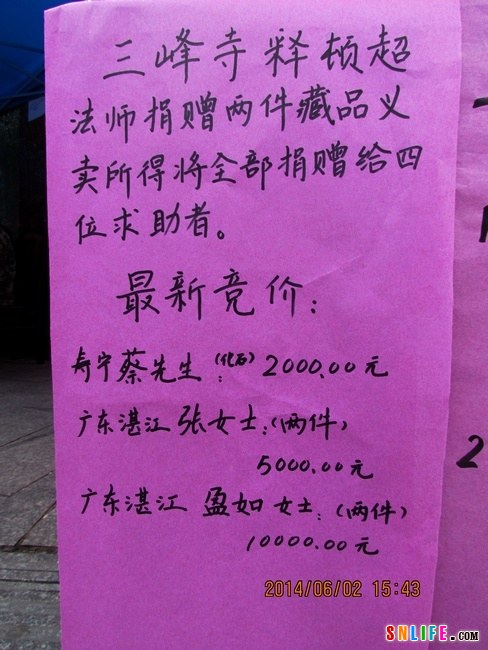 三峰寺释顿超
法师捐赠两件藏品义
卖所得将全部捐赠给四
位求助者。
最新竞价：
寿宁蔡先生(化石)：2000.00元
广东湛江张女士：(两件)
5000.00元
广东湛江 盈如女士：(两件)
10000.00元
2
2014/06/02 15:43
SNLIFE.com